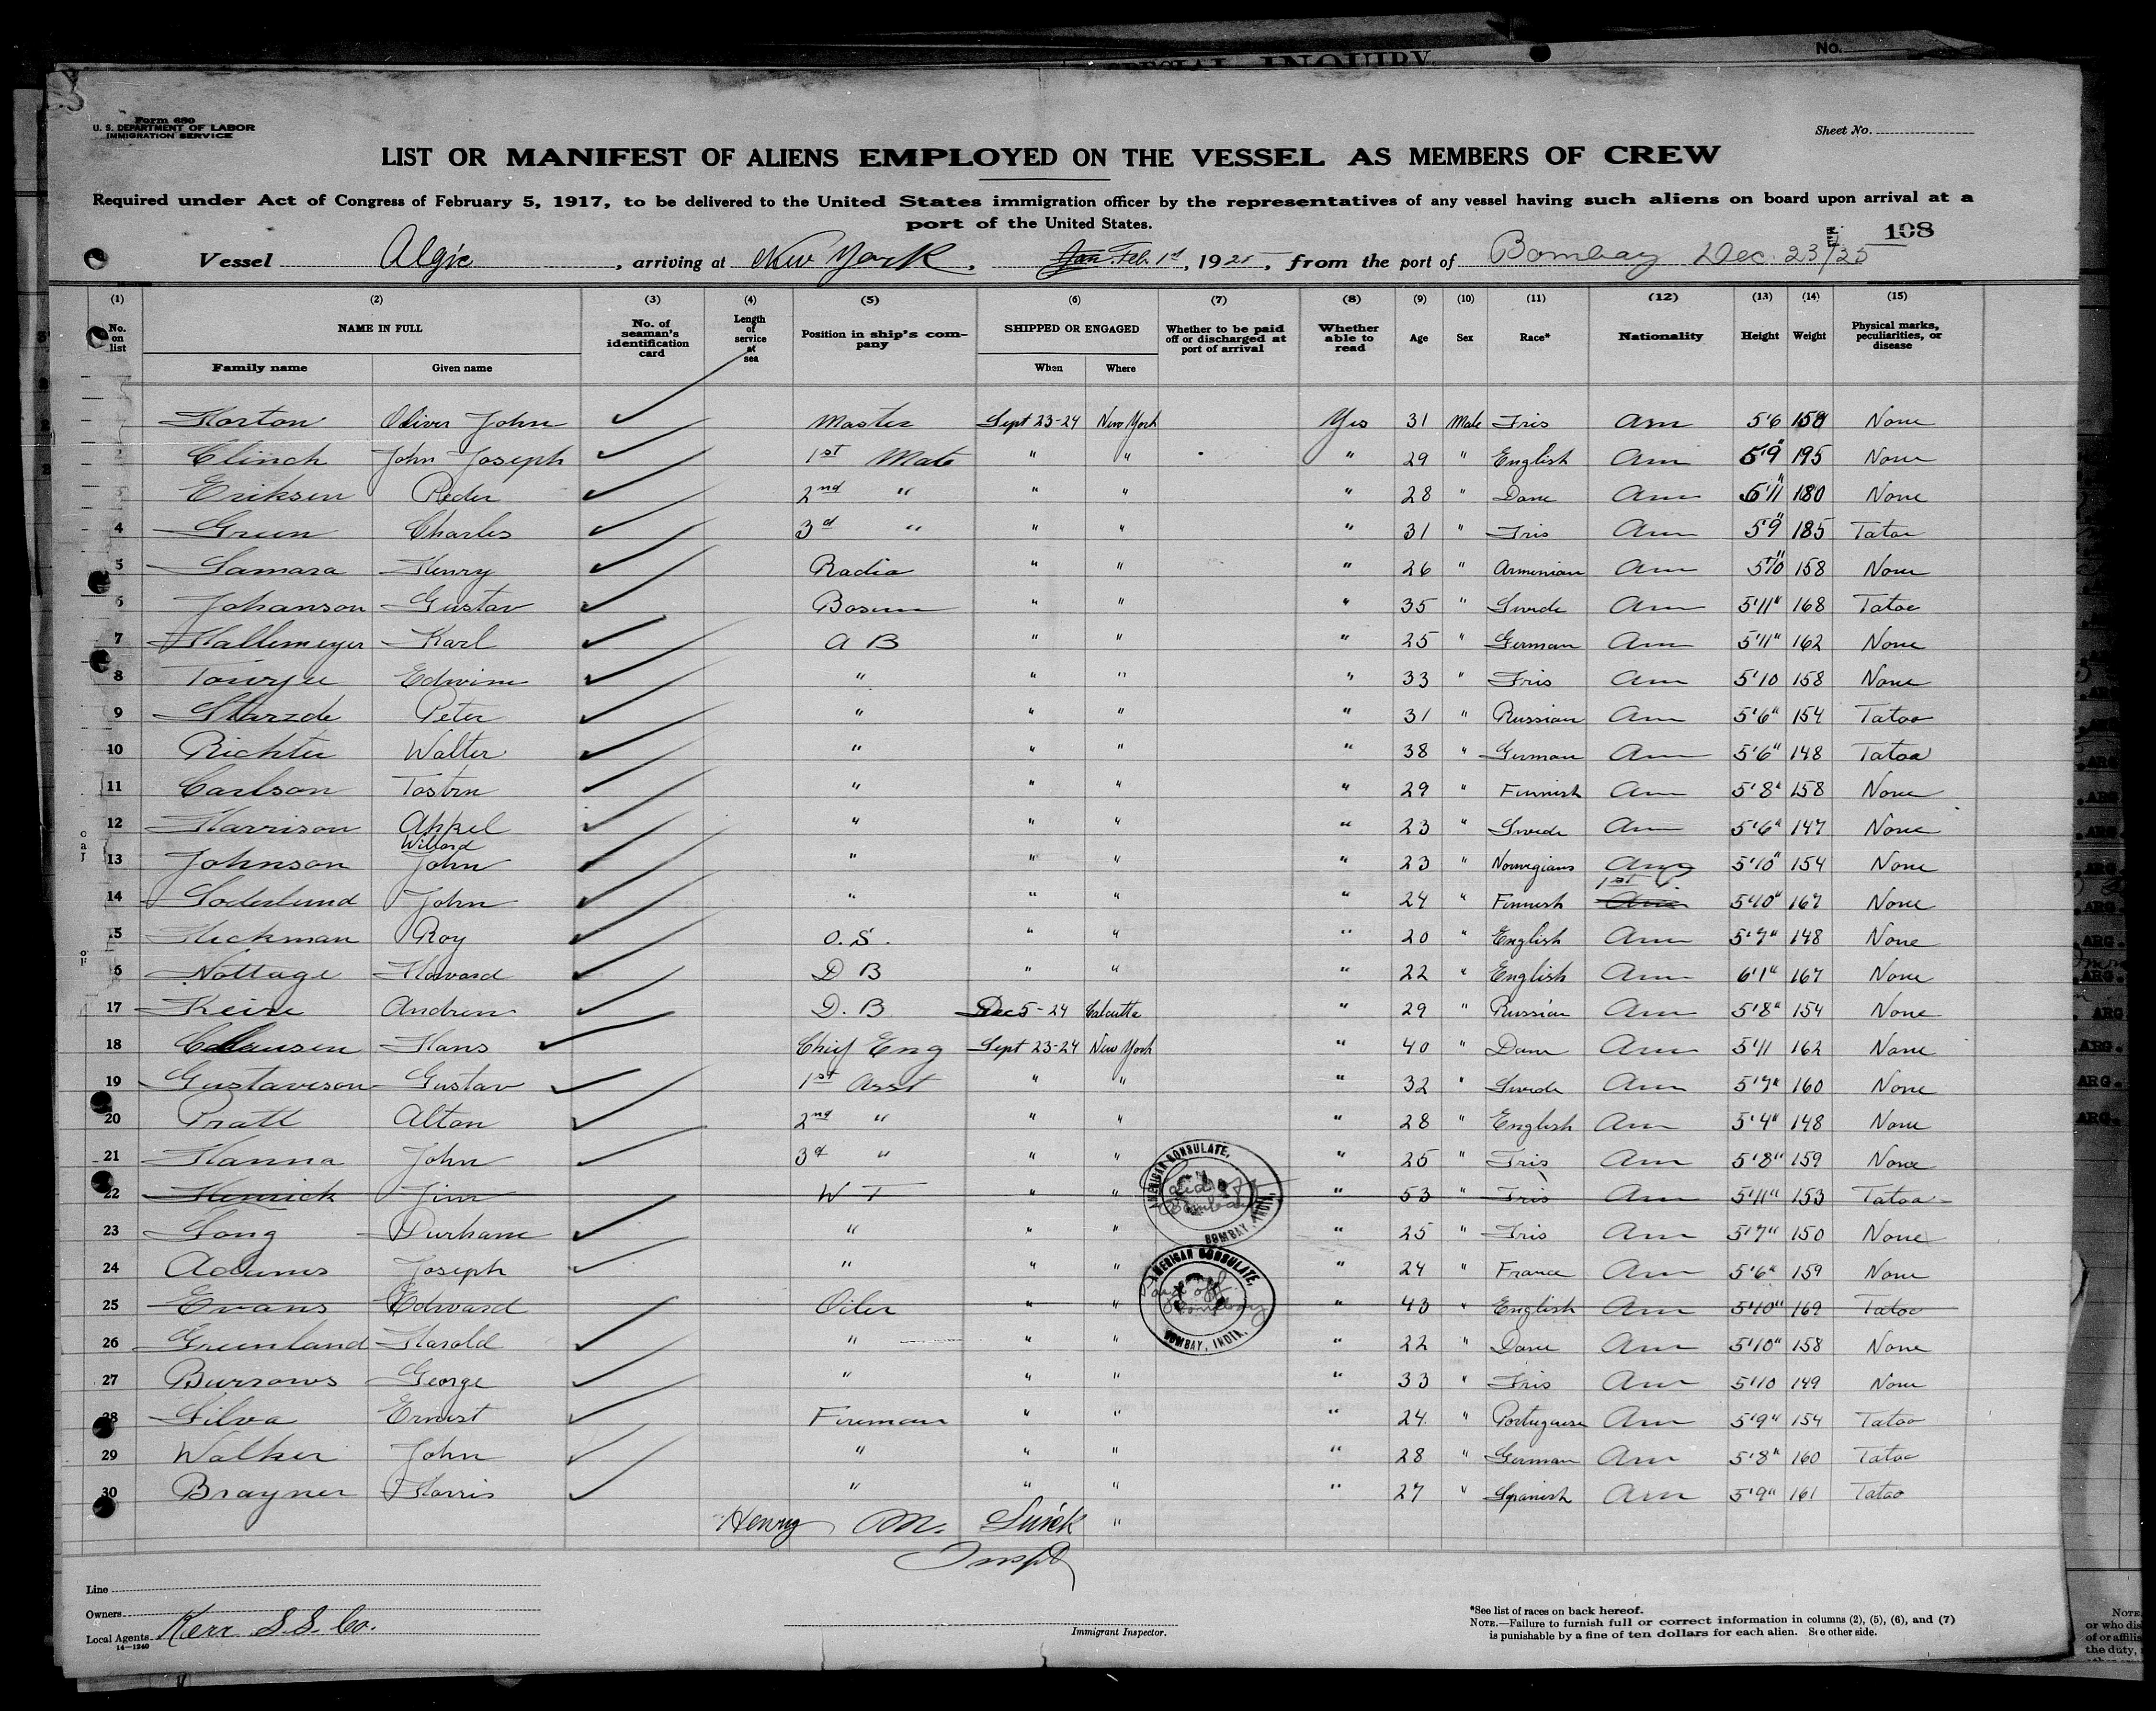 SPECIAL INQUIRY
No.
Form 680
U. S. DEPARTMENT OF LABOR
IMMIGRATION SERVICE
Sheet No.
LIST OR MANIFEST OF ALIENS EMPLOYED ON THE VESSEL AS MEMBERS OF CREW
Required under Act of Congress of February 5, 1917, to be delivered to the United States immigration officer by the representatives of any vessel having such aliens on board upon arrival at a
port of the United States.
108
Vessel Algic, arriving at New York, Jan Feb. 1st, 1925, from the port of Bombay Dec. 23/25
(1) (2) (3) (4) (5) (6) (7) (8) (9) (10) (11) (12) (13) (14) (15)
No. on list NAME IN FULL No. of seaman's identification card Length of service at sea Position in ship's company SHIPPED OR ENGAGED Whether to be paid off or discharged at port of arrival Whether able to read Age Sex Race* Nationality Height Weight Physical marks, peculiarities, or disease
Family name Given name When Where
Horton Oliver John Master Sept 23-24 New York Yes 31 Male Iris Am 5'6 150 None
2 Clinch John Joseph 1st Mate " " " 29 " English Am 5'9" 195 None
3 Eriksen Peder 2nd " " " " 28 " Dane Am 5'11" 180 None
4 Green Charles 3d " " " " 31 " Iris Am 5'9" 185 Tatoo
5 Samara Henry Radio " " " 26 " Armenian Am 5'10" 158 None
6 Johanson Gustav Bosun " " " 35 " Swede Am 5'11" 168 Tatoo
7 Hallemeyer Karl A B " " " 25 " German Am 5'11" 162 None
8 Edwine " " " " 33 " Iris Am 5'10 158 None
9 Peter " " " " 31 " Russian Am 5'6" 154 Tatoo
10 Richter Walter " " " " 38 " German Am 5'6" 148 Tatoo
11 Carlson Tostrn " " " " 29 " Finnish Am 5'8" 158 None
12 Harrison Akkel " " " " 23 " Swede Am 5'6" 147 None
Willard
13 Johnson John " " " " 23 " Norwegians Am 5'10" 154 None
1st P.
14 Soderlund John " " " " 24 " Finnish Am 5'10" 167 None
15 Hickman Roy O. S. " " " 20 " English Am 5'7" 148 None
16 Nottage Howard D B " " " 22 " English Am 6'1" 167 None
17 Andrew D. B Dec 5-24 Calcutta " 29 " Russian Am 5'8" 154 None
18 Clausen Hans Chief Eng Sept 23-24 New York " 40 " Dane Am 5'11 162 None
19 Gustaveson Gustav 1st Asst " " " 32 " Swede Am 5'7" 160 None
20 Pratt Alton 2nd " " " " 28 " English Am 5'4" 148 None
21 Hanna John 3d " " " " 25 " Iris Am 5'8" 159 None
22 Henrick Jim W T " " " 53 " Iris Am 5'11" 153 Tatoo
AMERICAN CONSULATE, BOMBAY, INDIA.
Paid off Bombay
23 Long Durham " " " " 25 " Iris Am 5'7" 150 None
24 Adams Joseph " " " " 24 " France Am 5'6" 159 None
25 Evans Edward Oiler " " " 43 " English Am 5'10" 169 Tatoo
AMERICAN CONSULATE, BOMBAY, INDIA.
Paid off Bombay
26 Greenland Harold " " " " 22 " Dane Am 5'10" 158 None
27 Burrows George " " " " 33 " Iris Am 5'10 149 None
28 Silva Ernest Fireman " " " 24 " Portuguese Am 5'9" 154 Tatoo
29 Walker John " " " " 28 " German Am 5'8" 160 Tatoo
30 Brayner Harris " " " " 27 " Spanish Am 5'9" 161 Tatoo
Henry M. "
Inspt
Line
Owners
Local Agents Kerr S.S. Co.
14—1240
Immigrant Inspector.
*See list of races on back hereof.
NOTE.—Failure to furnish full or correct information in columns (2), (5), (6), and (7)
is punishable by a fine of ten dollars for each alien. See other side.